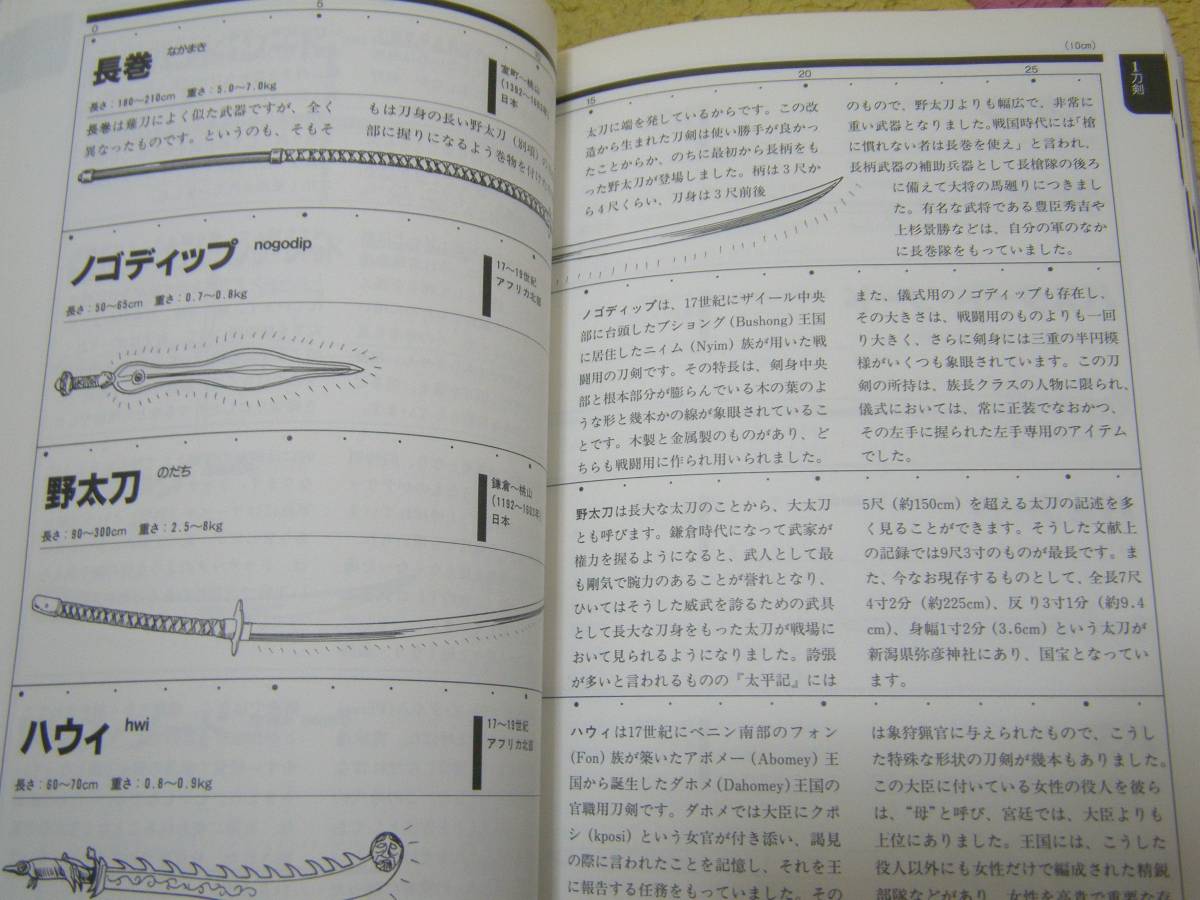 0
5
長巻
なかまき
長さ：180〜210cm 重さ：5.0〜7.0kg
室町〜桃山
(1392〜1603年)
日本
長巻は薙刀によく似た武器ですが、全く
異なったものです。というのも、そもそ
もは刀身の長い野太刀（別項）の
部に握りになるよう巻物を付けた
(10cm)
15
20
25
1 刀剣
太刀に端を発しているからです。この改
造から生まれた刀剣は使い勝手が良かっ
たことからか、のちに最初から長柄をも
った野太刀が登場しました。柄は3尺か
ら4尺くらい、刀身は3尺前後
のもので、野太刀よりも幅広で、非常に
重い武器となりました。戦国時代には「槍
に慣れない者は長巻を使え」と言われ、
長柄武器の補助兵器として長槍隊の後ろ
に備えて大将の馬廻りにつきまし
た。有名な武将である豊臣秀吉や
上杉景勝などは、自分の軍のなか
に長巻隊をもっていました。
ノゴディップ
nogodip
長さ：50〜65cm 重さ：0.7〜0.8kg
17〜19世紀
アフリカ北部
ノゴディップは、17世紀にザイール中央
部に台頭したブショング（Bushong）王国
に居住したニィム（Nyim）族が用いた戦
闘用の刀剣です。その特長は、剣身中央
部と根本部分が膨らんでいる木の葉のよ
うな形と幾本かの線が象眼されているこ
とです。木製と金属製のものがあり、ど
ちらも戦闘用に作られ用いられました。
また、儀式用のノゴディップも存在し、
その大きさは、戦闘用のものよりも一回
り大きく、さらに剣身には三重の半円模
様がいくつも象眼されています。この刀
剣の所持は、族長クラスの人物に限られ、
儀式においては、常に正装でなおかつ、
その左手に握られた左手専用のアイテム
でした。
野太刀
のだち
長さ：90〜300cm 重さ：2.5〜8kg
鎌倉〜桃山
(1192〜1603年)
日本
野太刀は長大な太刀のことから、大太刀
とも呼びます。鎌倉時代になって武家が
権力を握るようになると、武人として最
も剛気で腕力のあることが誉れとなり、
ひいてはそうした威武を誇るための武具
として長大な刀身をもった太刀が戦場に
おいて見られるようになりました。誇張
が多いと言われるものの『太平記』には
5尺（約150cm）を超える太刀の記述を多
く見ることができます。そうした文献上
の記録では9尺3寸のものが最長です。ま
た、今なお現存するものとして、全長7尺
4寸2分（約225cm）、反り3寸1分（約9.4
cm）、身幅1寸2分（3.6cm）という太刀が
新潟県弥彦神社にあり、国宝となってい
ます。
ハウィ
hwi
長さ：60〜70cm 重さ：0.8〜0.9kg
17〜19世紀
アフリカ北部
ハウィは17世紀にベニン南部のフォン
（Fon）族が築いたアボメー（Abomey）王
国から誕生したダホメ（Dahomey）王国の
官職用刀剣です。ダホメでは大臣にクポ
シ（kposi）という女官が付き添い、謁見
の際に言われたことを記憶し、それを王
に報告する任務をもっていました。その
は象狩猟官に与えられたもので、こうし
た特殊な形状の刀剣が幾本もありました。
この大臣に付いている女性の役人を彼ら
は、“母”と呼び、宮廷では、大臣よりも
上位にありました。王国には、こうした
役人以外にも女性だけで編成された精鋭
部隊などがあり、女性を高貴で重要な存